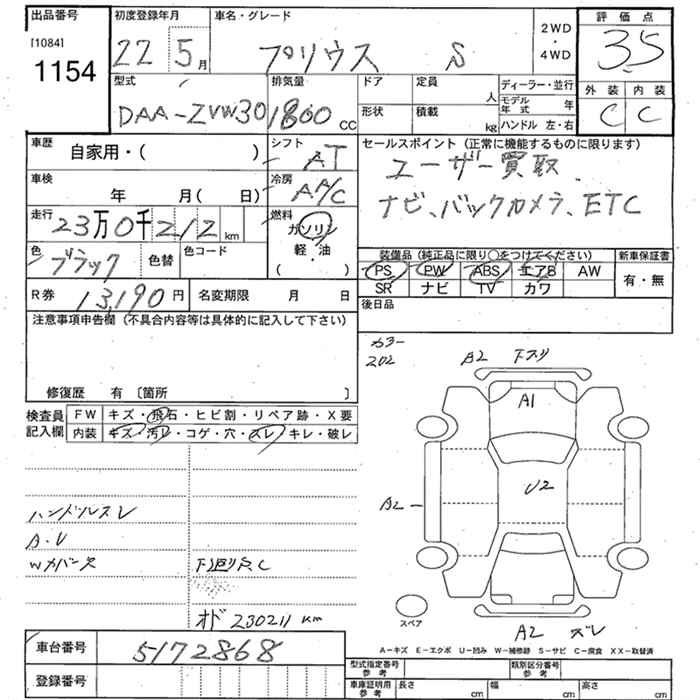 出品番号
[1084]
1154
初度登録年月
22 5月
車名・グレード
プリウス S
2WD
・
4WD
評価点
3.5
外装 内装
C C
型式
DAA-ZVW30
排気量
1800 CC
ドア
定員
人
形状
積載
kg
ディーラー・並行
モデル年式 年
ハンドル 左・右
車歴
自家用・( )
シフト
AT
車検
年 月( 日)
冷房
AA/C
走行
23万0千212 km
燃料
ガソリン
軽・油
( )
色
ブラック
色替
色コード
R券 13,190円
名変期限 月 日
セールスポイント(正常に機能するものに限ります)
ユーザー買取
ナビ、バックカメラ、ETC
装備品(純正品に限り○をつけてください)
PS PW ABS エアB AW
SR ナビ TV カワ
新車保証書
有・無
後日品
注意事項申告欄(不具合内容等は具体的に記入して下さい)
修復歴 有〔箇所 〕
検査員記入欄
FW キズ・飛石・ヒビ割・リペア跡・X要
内装 キズ・汚レ・コゲ・穴・スレ・キレ・破レ
ハンドルスレ
A・U
Wカバーズ
下廻りS、C
オド 230211 km
カラー
202
A2 下スリ
A1
U2
A2
スペア
A2 ズレ
A-キズ E-エクボ U-凹み W-補修跡 S-サビ C-腐食 XX-取替済
車台番号
5172868
登録番号
型式指定番号 参考
類別区分番号 参考
車庫証明用 参考
長さ cm
幅 cm
高さ cm